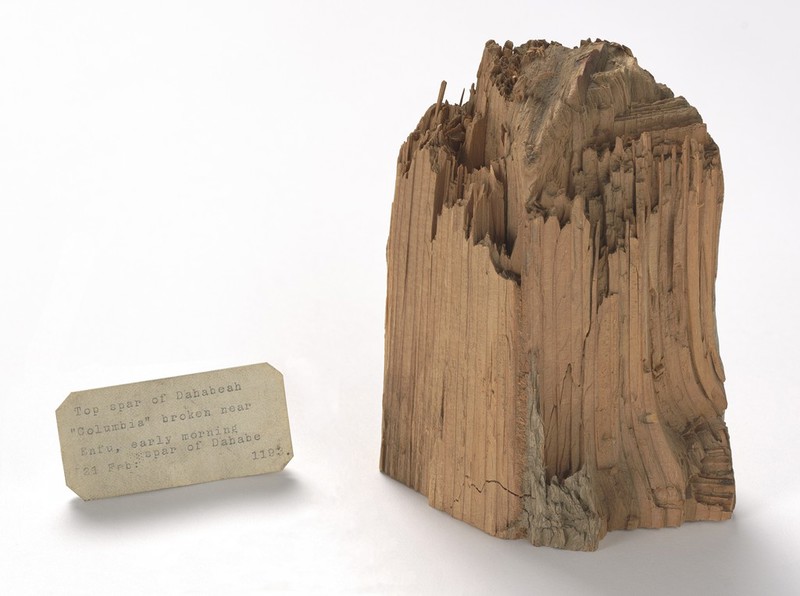 Top spar of Dahabeah
"Columbia" broken near
Enfu, early morning
21 Feb: spar of Dahabe
1193.